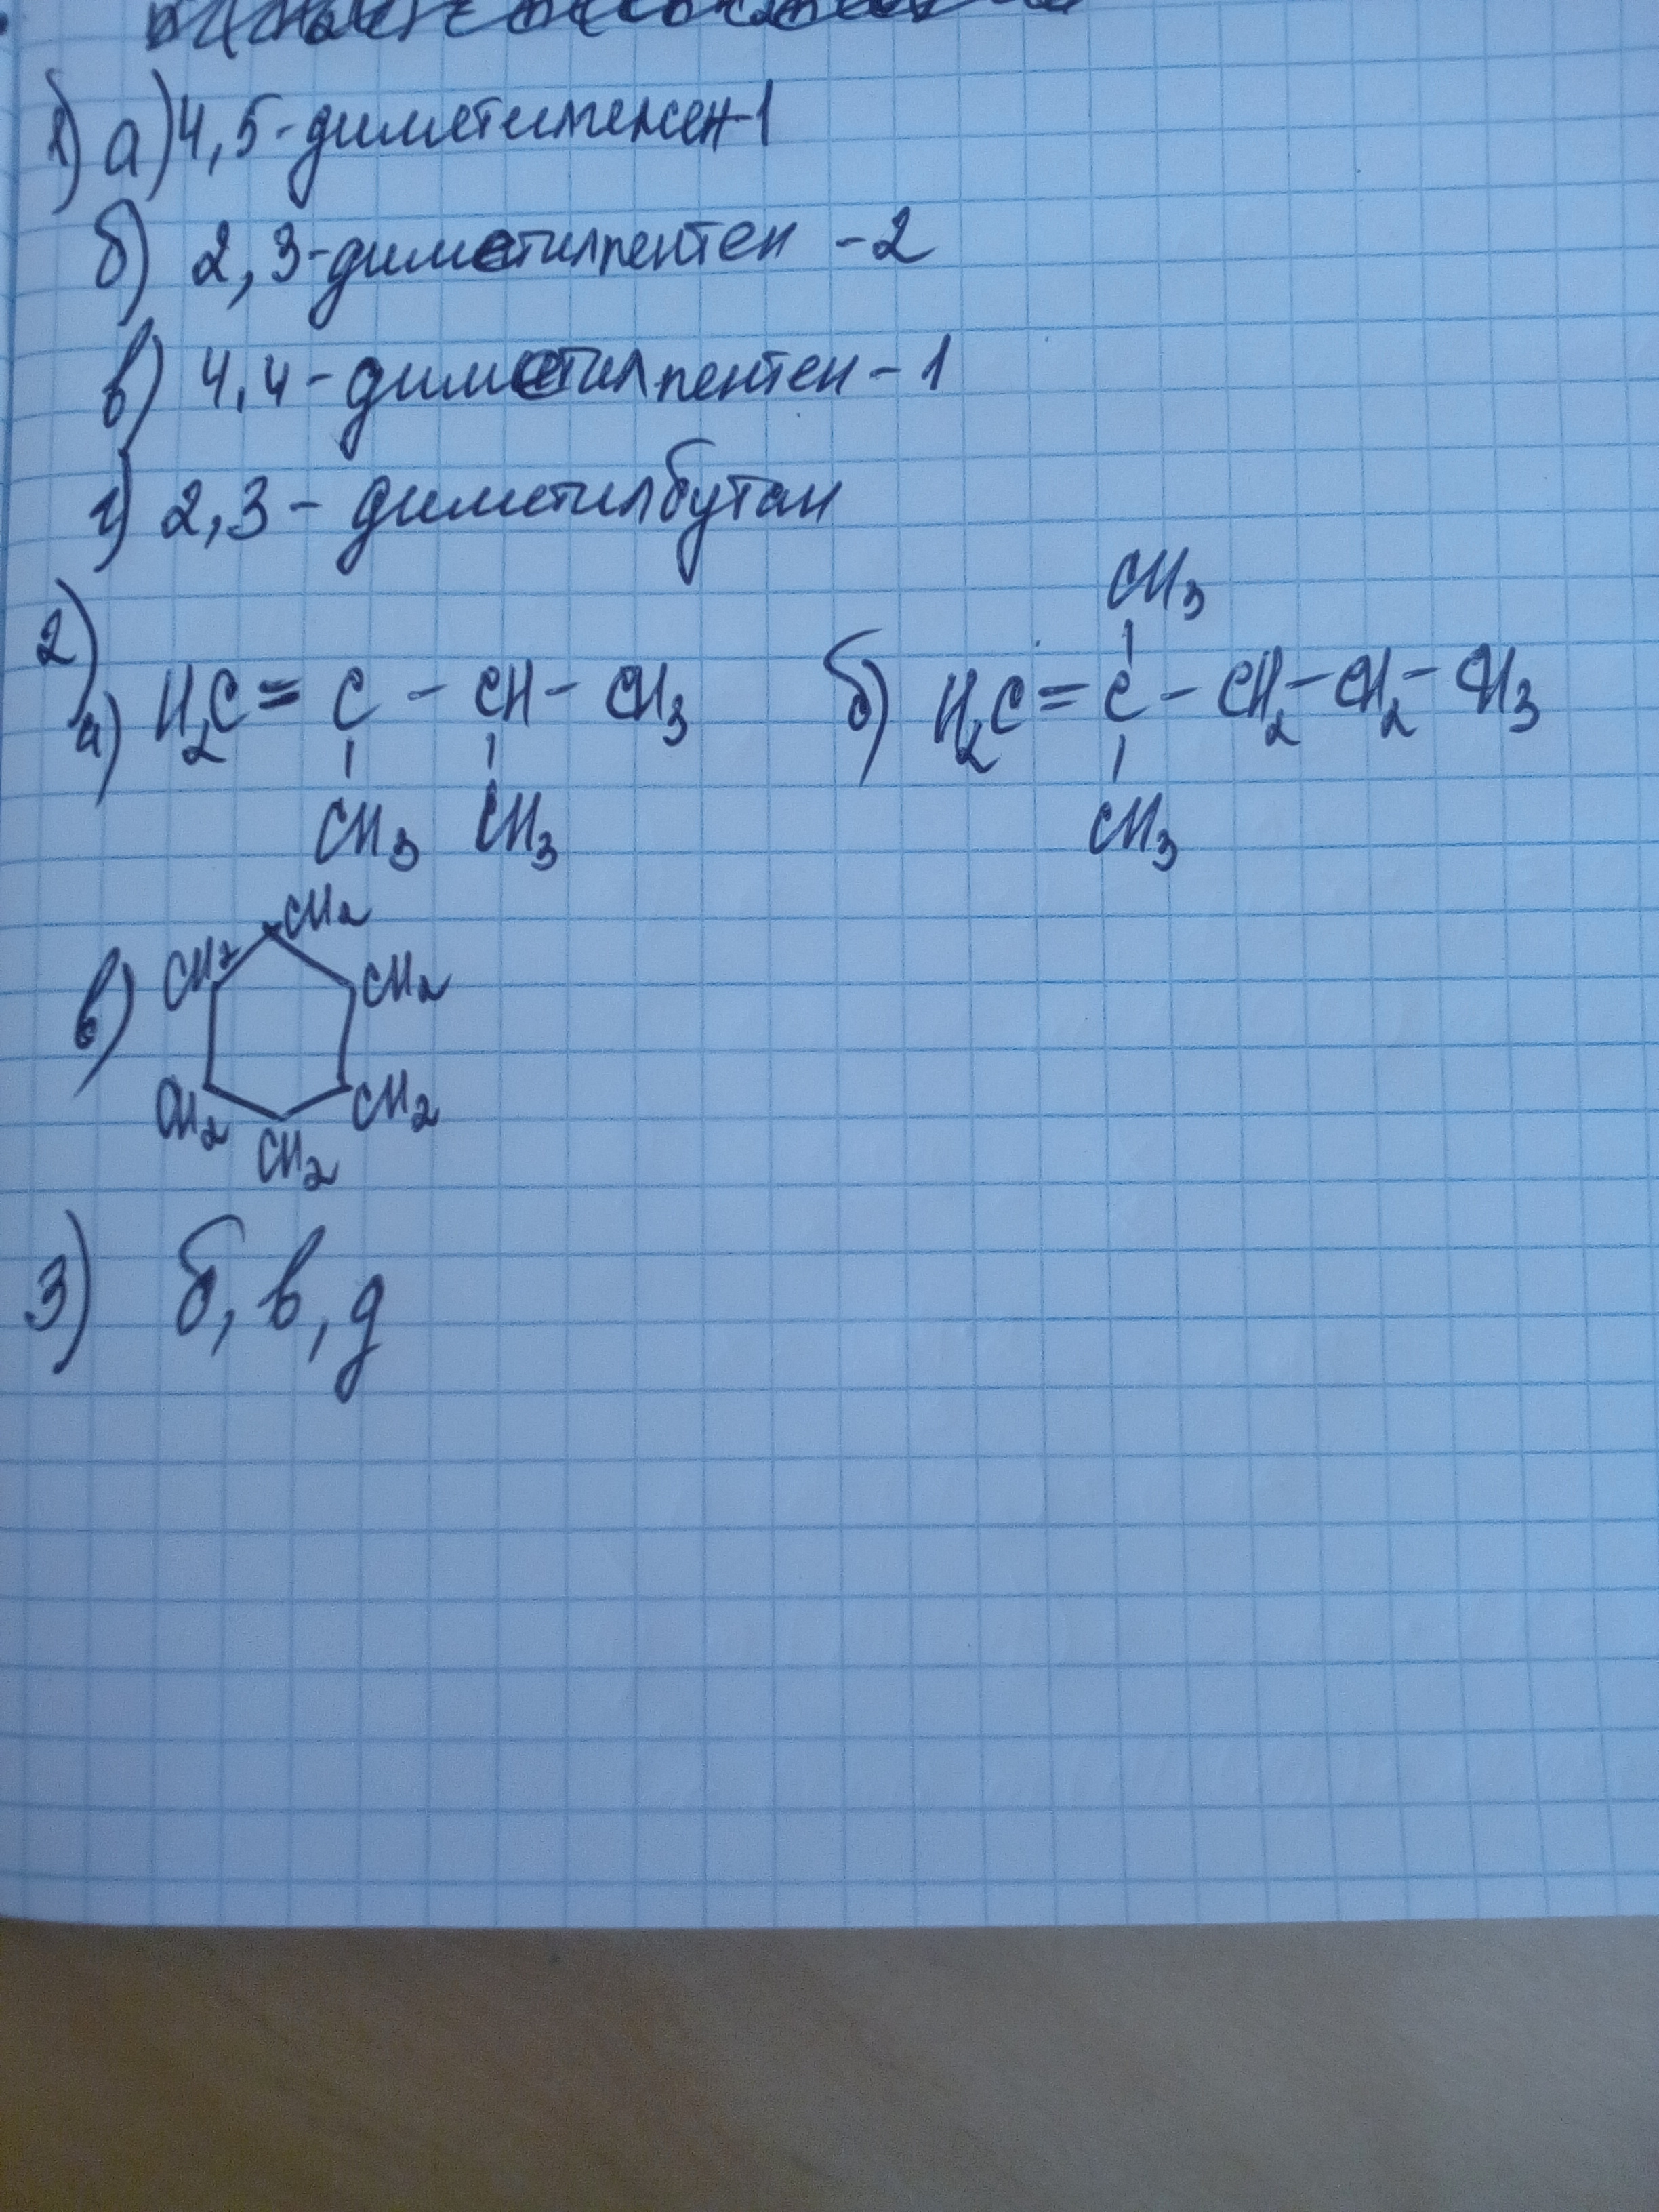 1) а) 4,5-диметилгексен-1
б) 2,3-диметилпентен -2
в) 4,4-диметилпентен-1
г) 2,3-диметилбутан
2)
а) H2C = C - CH - CH3
CH3 CH3
CH3
б) H2C = C - CH2 - CH2 - CH3
CH3
в) CH2
CH2 CH2
CH2 CH2
CH2
3) б, в, д